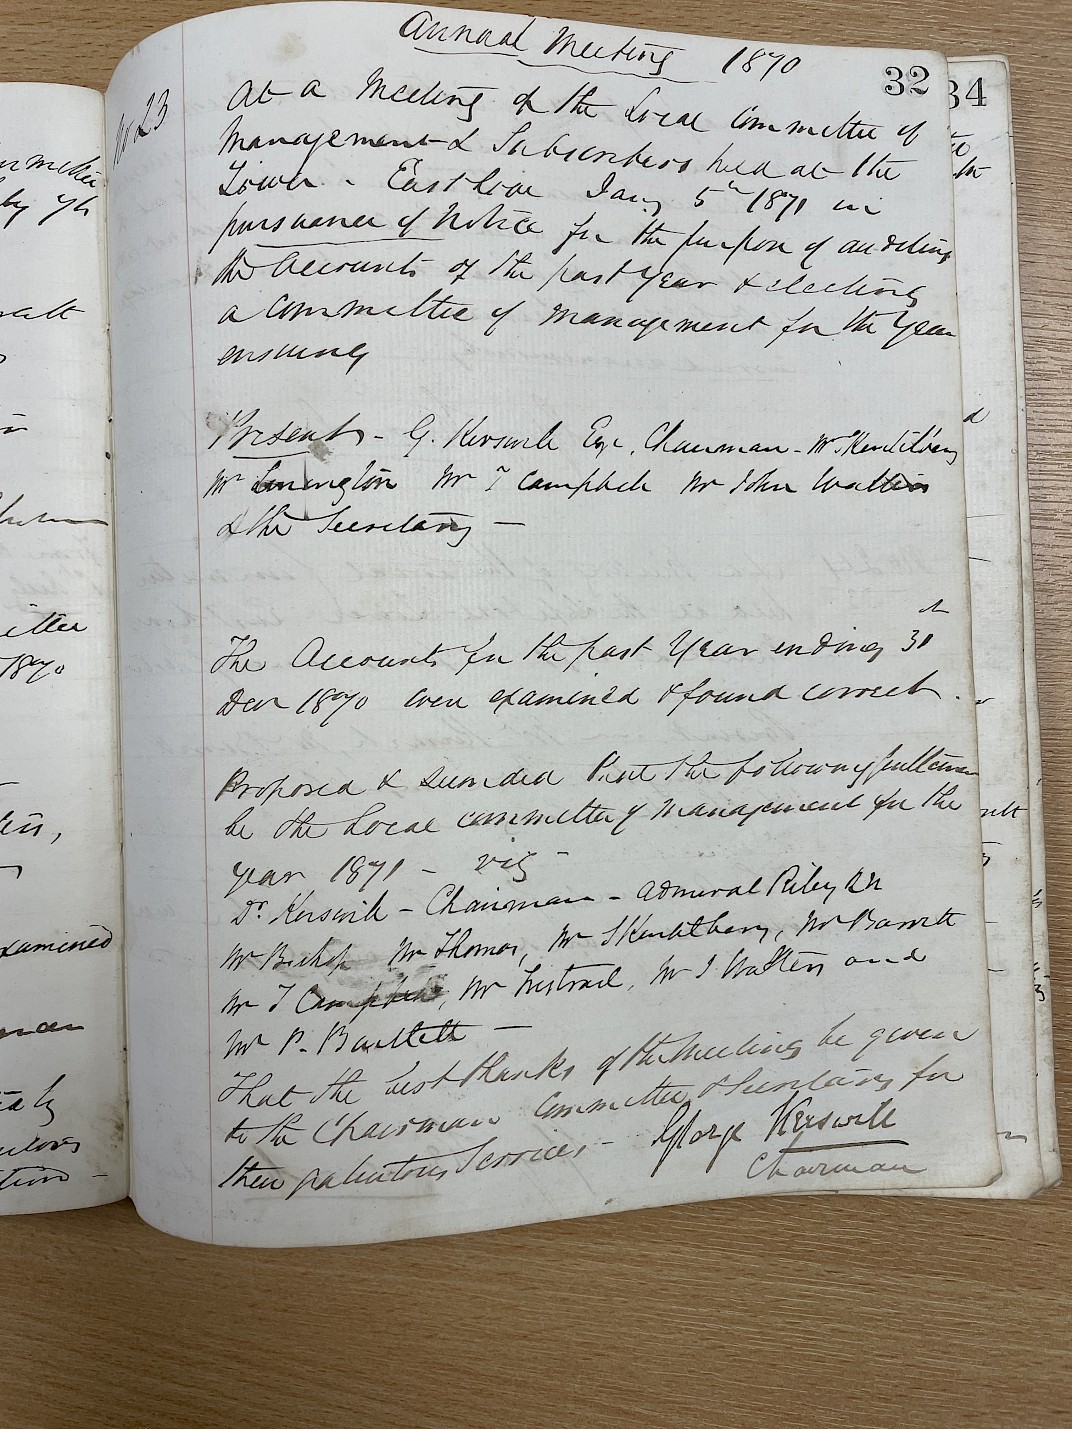 Annual Meeting 1870
32
34
No 23
At a Meeting of the Local Committee of
Management & Subscribers held at the
Tower - East Looe Jany 5th 1871 in
pursuance of Notice for the purpose of auditing
the Accounts of the past Year & electing
a Committee of Management for the Year
ensuing
Present - G. Kerswill Esqr, Chairman - Mr Skentelbery
Mr T Campbell Mr John Watters
& the Secretary -
The Accounts for the past Year ending 31st
Decr 1870 were examined & found correct.
Proposed & Seconded that the following Gentlemen
be the Local committee of Management for the
year 1871 - viz -
Dr. Kerswill - Chairman - Admiral Riley RN
Mr Bishop Mr Thomas, Mr Skentelbery, Mr Barrett
Mr T Campbell, Mr J Watters and
Mr P. Bartlett -
That the best thanks of the Meeting be given
to the Chairman Committee & Secretary for
their gratuitous Services -
George Kerswill
Chairman